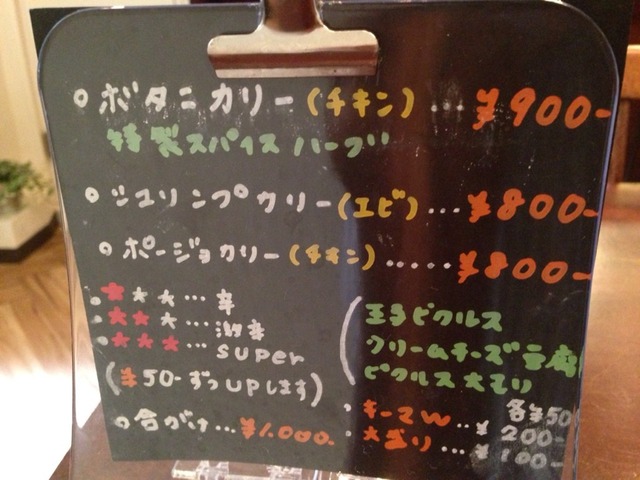 ボタニカリー(チキン)...¥900-
特製スパイス ハーブ
シュリンプカリー(エビ)...¥800-
ポージョカリー(チキン).....¥800-
★☆☆...辛
★★☆...激辛
★★★...super
(¥50-ずつUPします)
合がけ...¥1,000.
玉子ピクルス
クリームチーズ豆腐
ピクルス大モリ
各¥50
キーマW..¥200-
大盛り...¥100-